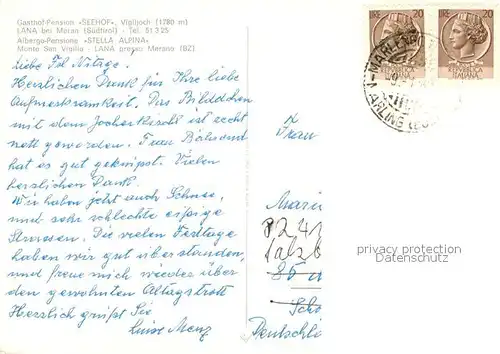 Gasthof-Pension «SEEHOF», Vigiljoch (1780 m)
LANA bei Meran (Südtirol) - Tel. 51 3 25
Albergo-Pensione «STELLA ALPINA»
Monte San Vigilio - LANA presso Merano (BZ)
Liebe Frl.
Herzlichen Dank für Ihre liebe
Aufmerksamkeit. Das Bildchen
mit dem Jocherkirchl ist echt
nett geworden. Frau
hat es gut geknipst. Vielen
herzlichen Dank.
Wir haben jetzt auch Schnee,
und sehr schlechte eisige
Strassen. Die vielen Festtage
haben wir gut überstanden,
und freue mich wieder über
den gewohnten Alltagstrott
Herzlich grüßt Sie
Luise Menz
LIRE 20
ITALIANA
MARLENGO
MARLING
Frau
Marie
8241
Salzb
Deutschl
privacy protection
Datenschutz